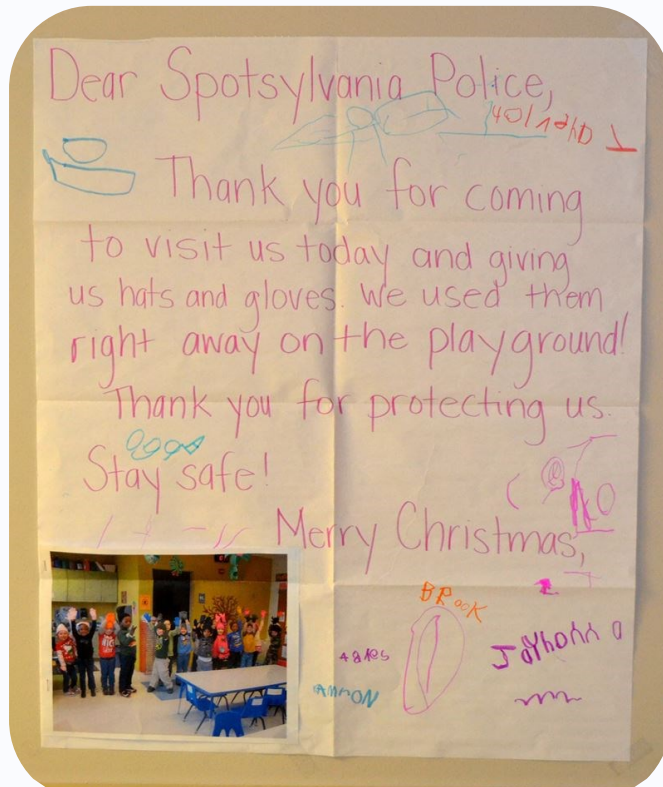 Dear Spotsylvania Police,
Thank you for coming
to visit us today and giving
us hats and gloves. We used them
right away on the playground!
Thank you for protecting us.
Stay safe!
Merry Christmas,
BRooK